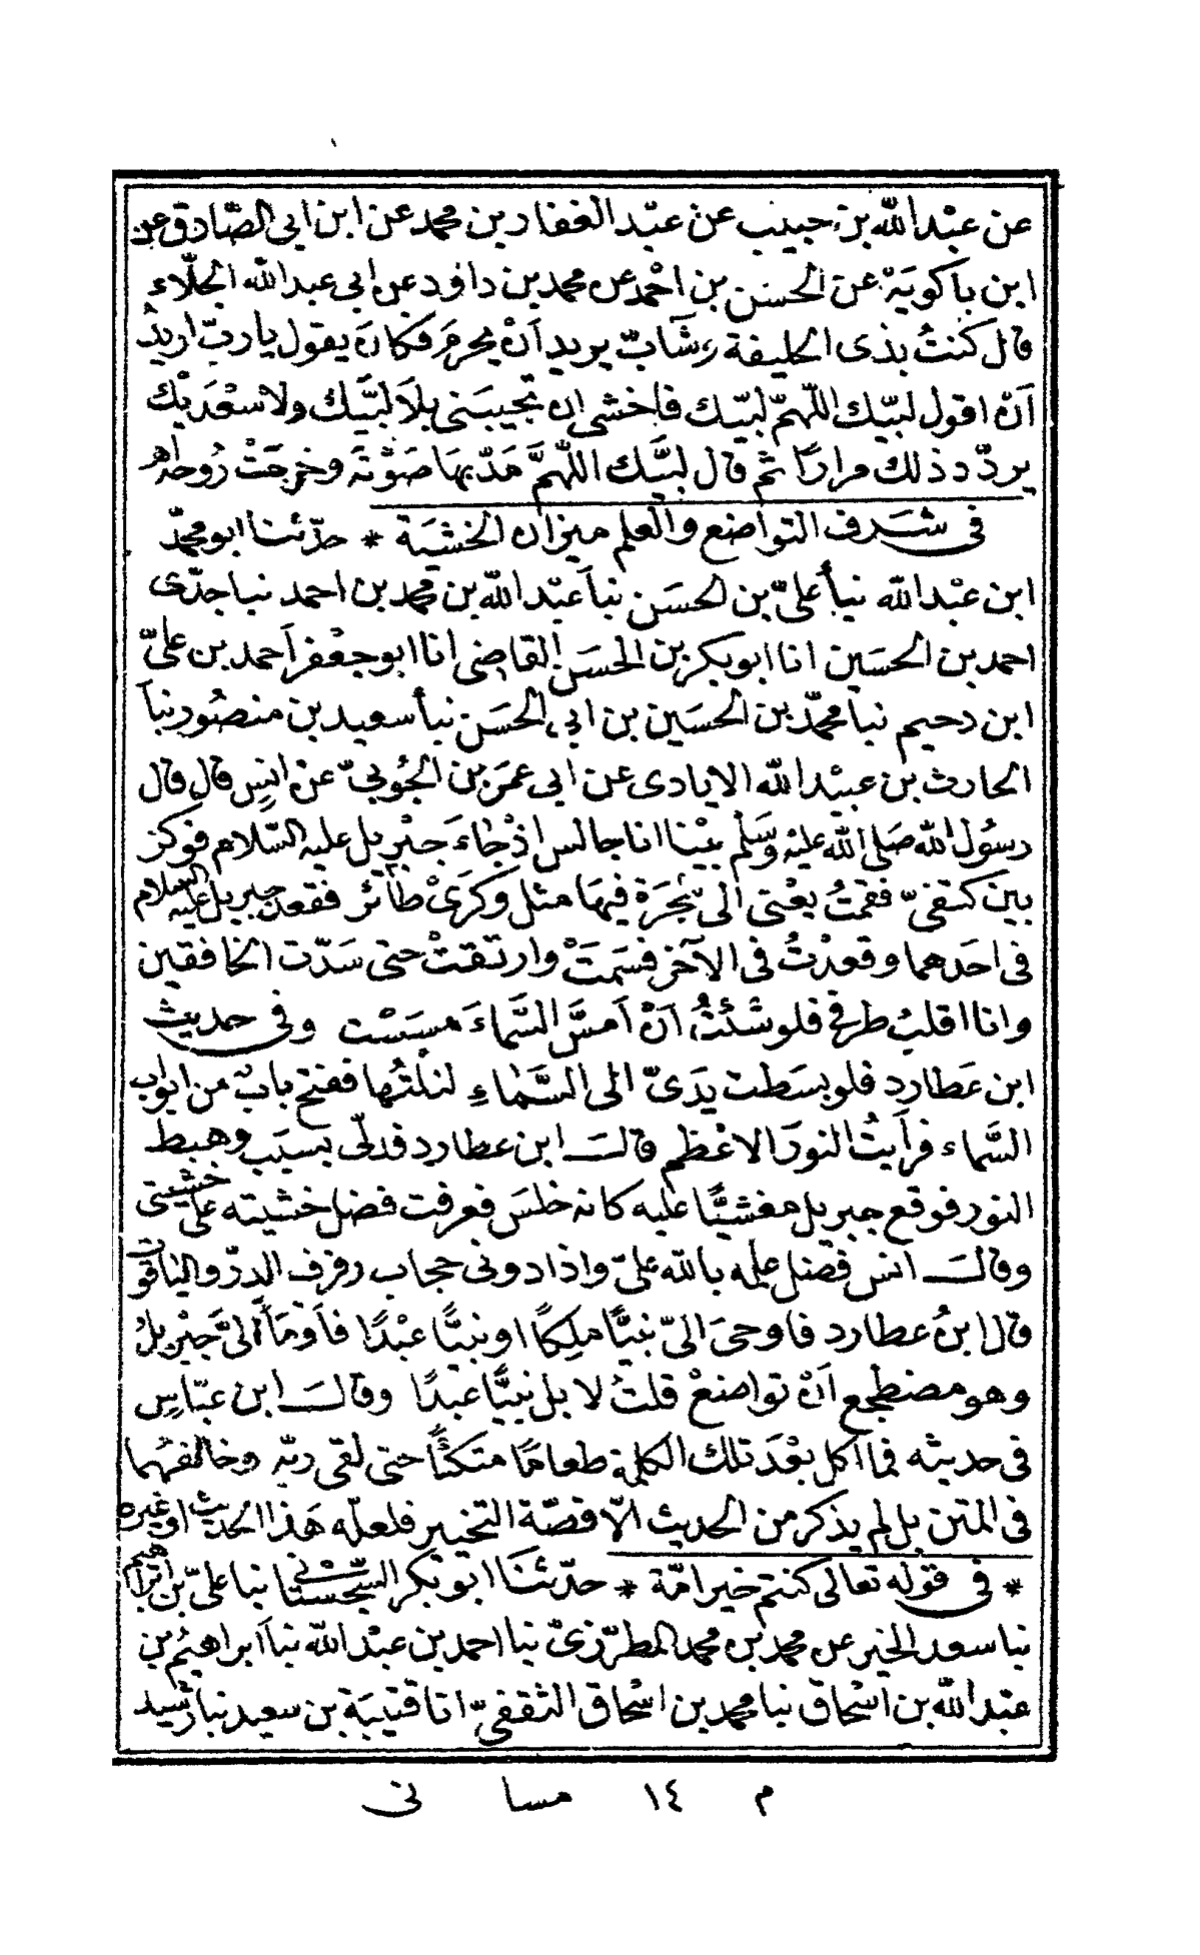 عن عبْدالله بن حبيب عن عبْد الغفار بن محمد عن ابن ابى الصّادق عن
ابن باكويَة عن الحسَن بن احْمد عن محمد بن داود عن ابى عبدالله الجلّاء
قال كنتُ بذى الحليفة وشابّ يريد اَنْ يحرمَ فكان يقول يا ربّ اريدُ
اَنْ اقول لبّيك اللّهمّ لبّيك فاخشى ان تجيبَنى بلاَ لبَّيك ولا سعْدَيْك
يردّد ذلك مرارًا ثم قال لبَّيك اللّهمَّ مَدّ بهَا صَوْته وخرجَتْ رُوحُه
فى شَرف التواضع والعلم ميزان الخشيَة * حدّثنا ابو محمّد
ابن عبْدالله نبأ علىّ بن الحسَن نبأ عبْدالله بن محمد بن احمد نبا جدّى
احمد بن الحسَين انا ابو بكر بن الحسَن القاضى انا ابو جعْفر اَحمد بن علىّ
ابن دحيم نبا محمّد بن الحسَين بن ابى الحسَن نبأ سعيد بن منصُور نبأ
الحارث بن عبيْد الله الايادى عن ابى عمرَ بن الجُوبىّ عن انسٍ قال قال
رسُول الله صَلى الله عليْه وَسَلم بيْنا انا جالس اذْ جاءَ جبْريل عليه السّلام فوكز
بين كتفىّ فقمتُ يعْنى الى شجَرَة فيهَا مثل وَكرَىْ طائر فقعد جبريل عليه السلام
فى احَدهما وقعدْتُ فى الآخر فسَمَتْ وارتقتْ حتى سَدّت الخافقين
وانا اقلبُ طرفى فلو شئتُ اَنْ اَمسَّ السَّماءَ مسَسْت وفى حديث
ابن عَطارد فلو بسَطت يدَىّ الى السَّماءِ لنلتُها ففتح بابٌ من ابواب
السَّماء فراَيتُ النورَ الاعْظم قالَ ابن عطارد فدلّى بسَبَب وهبط
النور فوقع جبريل مغشيًّا عليه كانه حلسَ فعرفت فضل خشيته على خشيتى
وقالَ انس فضل علمه بالله علىّ واذا دونى حجاب رفرف الدرّ والياقوت
قال ابنُ عطارد فاوحىَ الىّ نبيًّا ملِكًا او نبيًّا عبْدًا فاَومَأَ الىَّ جبْريلُ
وهو مضطجع اَنْ تواضعْ قلتُ لا بل نبيًّا عبْدًا وقالَ ابن عبّاسٍ
فى حديثه فما اكل بعْدَ تلك الكلمة طعامًا متكئًا حتى لقى ربّه وخالفهُما
فى المتن بل لم يذكر من الحديث الّا قصّة التخيير فلعلّه هَذا الحديث او غيره
* فى قوله تعالى كنتم خير امّة * حدّثنَا ابو بكر السّجستانى نبا علىّ بن ابراهيم
نبا سعد الخير عن محمد بن محمد المطرّزىّ نبا احمد بن عبْدالله نبا اَبراهيمُ بن
عبْدالله بن اسْحاق نبا محمد بن اسْحاق الثقفىّ انا قتيبَة بن سعيد نبا رشيد
م ١٤ مسا نى